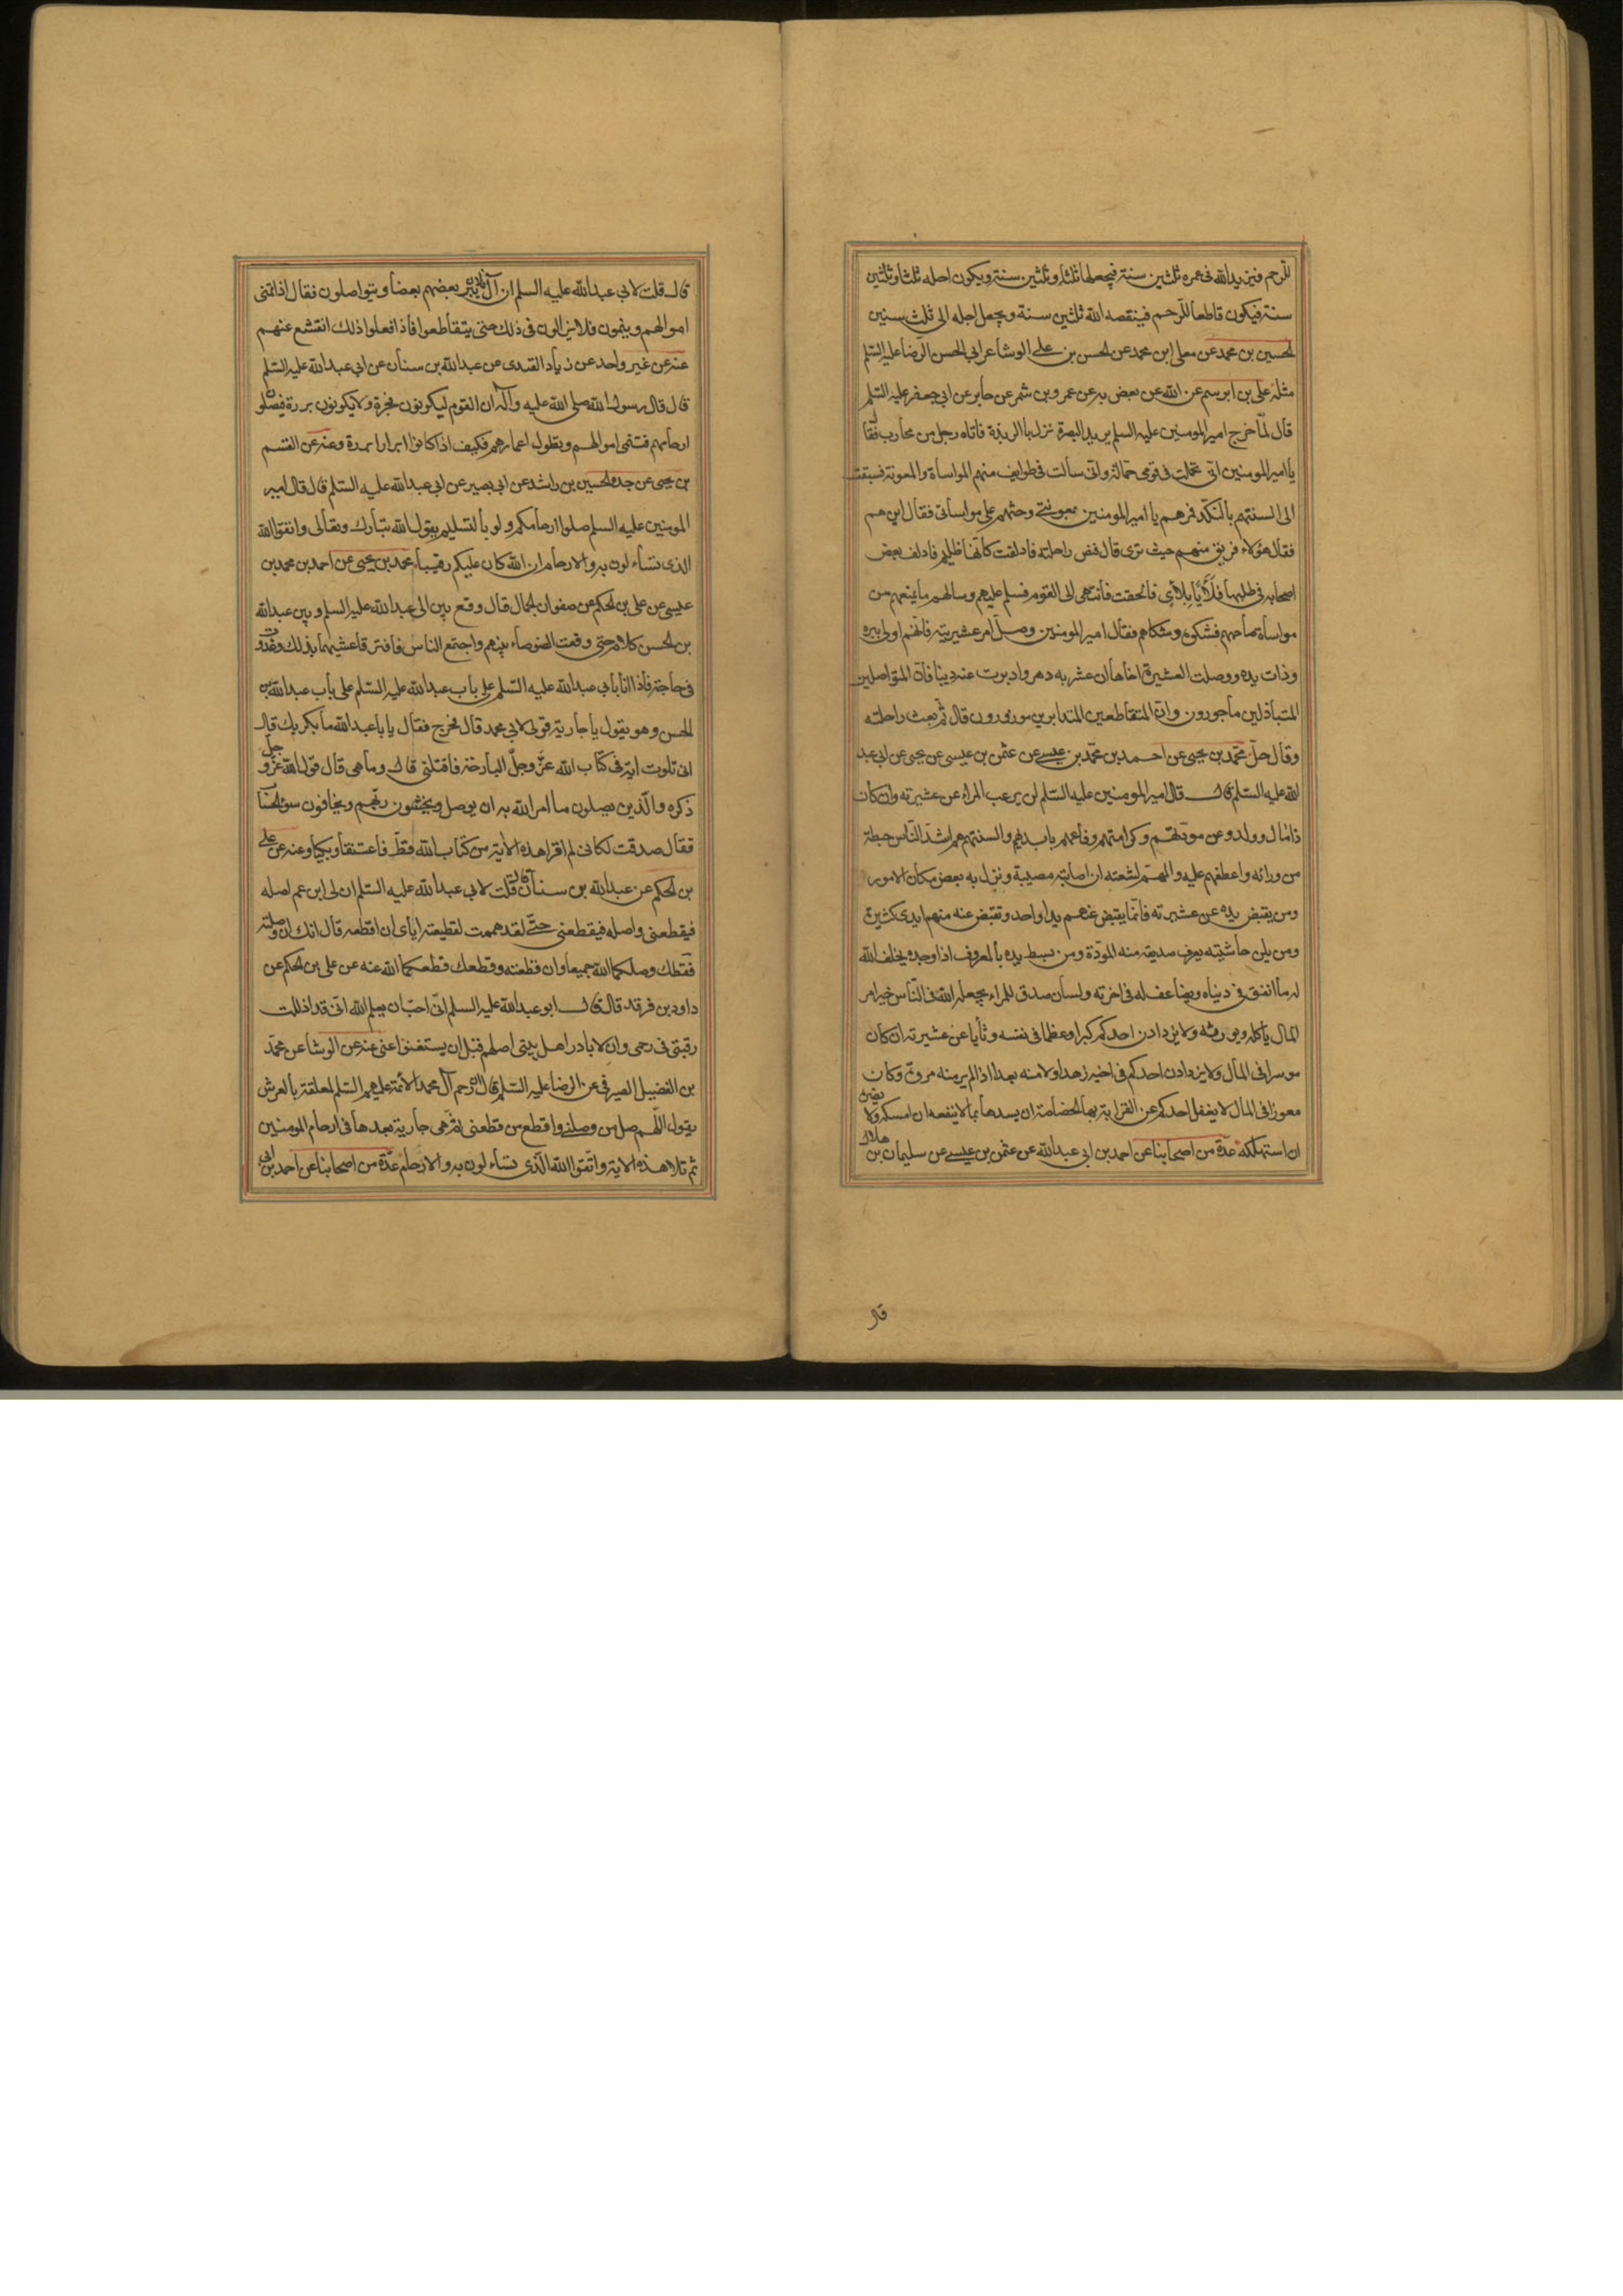 للرحم فيزيد الله في عمره ثلثين سنة فيجعلها ثلثا وثلثين سنة ويكون اجله ثلثا وثلثين
سنة فيكون قاطعا للرحم فينقصه الله ثلثين سنة ويجعل اجله الى ثلث سنين
الحسين بن محمد عن معلى ابن محمد عن الحسن بن على الوشا عن ابي الحسن الرضا عليه السلم
مثله على بن ابرهيم عن الله عن بعض به عن عمرو بن شمر عن جابر عن ابي جعفر عليه السلم
قال لما خرج امير المومنين عليه السلم يريد البصرة نزل بالربذة فاتاه رجل من محارب فقا
يا امير المومنين اني تحملت في قومى حمالة واني سالت في طوايف منهم المواساة والمعونة فسبقت
الى السنتهم بالنكد فمرهم يا امير المومنين بمعونتي وحثهم على مواساتي فقال اين هم
فقال هؤلاء فريق منهم حيث ترى قال فنص راحلته فادلفت كانها ظليم فادلف بعض
اصحابه في طلبها فلايا بلاى فالحقت فانتهى الى القوم فسلم عليهم وسالهم ما يمنعهم من
مواساة صاحبهم فشكوه وشكاهم فقال امير المومنين وصل امر عشيرته فانهم اولى ببره
وذات يده ووصلت العشيرة اخاها ان عثر به دهر وادبرت عنه دينا فان المتواصلين
المتباذلين ماجورون وان المتقاطعين المتدابرين موزورون قال ثم بعث راحلته
وقال حل محمد بن يحيى عن احمد بن محمد بن عيسى عن عثمن بن عيسى عن يحيى عن ابي عبد
الله عليه السلم قال قال امير المومنين عليه السلم لن يرغب المراء عن عشيرته وان كان
ذا مال وولد وعن مودتهم وكرامتهم ودفاعهم بايديهم والسنتهم هم اشد الناس حيطة
من ورائه واعطفهم عليه والمهم لشعثه ان اصابته مصيبة ونزل به بعض مكان الامور
ومن يقبض يده عن عشيرته فانما يقبض عنهم يدا واحد وتقبض عنه منهم ايدى كثيرة
ومن يلن حاشيته يعرف صديقه منه المودة ومن بسط يده بالمعروف اذا وجده يخلف الله
له ما انفق في دنياه ويضاعف له في اخرته ولسان صدق للمراء يجعله الله في الناس خير امر
المال ياكله ويورثه ولا يزدادن احدكم كبرا وعظما في نفسه ونأيا عن عشيرته ان كان
موسرا في المال ولا يزدادن احدكم في اخيه زهدا ولا منه بعدا اذا لم ير منه مروة وكان
معوزا في المال لا يغفل احدكم عن القرابة بها الخصاصة ان يسدها بما لا ينفعه ان امسكه ولا يضره
ان استهلكه عدة من اصحابنا عن احمد بن ابي عبد الله عن عثمن بن عيسى عن سليمان بن هلال
قال
قال قلت لابي عبد الله عليه السلم ان آل فلان يبر بعضهم بعضا ويتواصلون فقال اذا تنمى
اموالهم وينمون فلا يزالون في ذلك حتى يتقاطعوا فاذا فعلوا ذلك انقشع عنهم
عنه عن غير واحد عن زياد القندى عن عبد الله بن سنان عن ابي عبد الله عليه السلم
قال قال رسول الله صلى الله عليه وآله ان القوم ليكونون فجرة ولا يكونون بررة فيصلو
ارحامهم فتنمى اموالهم وتطول اعمارهم فكيف اذا كانوا ابرارا بررة وعنه عن القسم
بن يحيى عن جده الحسين بن راشد عن ابي بصير عن ابي عبد الله عليه السلم قال قال امير
المومنين عليه السلم صلوا ارحامكم ولو بالتسليم يقول الله تبارك وتعالى واتقوا الله
الذى تساءلون به والارحام ان الله كان عليكم رقيبا محمد بن يحيى عن احمد بن محمد بن
عيسى عن على بن الحكم عن صفوان الجمال قال وقع بين ابى عبد الله عليه السلم وبين عبد الله
بن الحسن كلام حتى وقعت الضوضاء بينهم واجتمع الناس فافترقا عشيتهما بذلك وغدوت
في حاجة فاذا انا بأبي عبد الله عليه السلم على باب عبد الله عليه السلم على باب عبد الله بن
الحسن وهو يقول يا جارية قولى لابي محمد قال فخرج فقال يابا عبد الله ما بكر بك قال
اني تلوت اية في كتاب الله عز وجل البارحة فاقلتنى قال وما هى قال قول الله عز وجل
ذكره والذين يصلون ما امر الله به ان يوصل ويخشون ربهم ويخافون سوء الحساب
فقال صدقت لكاني لم اقرا هذه الاية من كتاب الله قط فاعتنقا وبكيا وعنه عن على
بن الحكم عن عبد الله بن سنان قال قلت لابي عبد الله عليه السلم ان لى ابن عم اصله
فيقطعنى واصله فيقطعنى حتى لقد هممت لقطيعته اياى ان اقطعه قال انك ان وصلته
فقطك وصلكما الله جميعا وان قطعته وقطعك قطعكما الله عنه عن على بن الحكم عن
داود بن فرقد قال قال ابو عبد الله عليه السلم اني احب ان يعلم الله اني قد اذللت
رقبتى في رحمى واني لابادر اهل بيتى اصلهم قبل ان يستغنوا عنى عنه عن الوشا عن محمد
بن الفضيل الصيرفي عن الرضا عليه السلم قال ان رحم آل محمد الأئمة عليهم السلم لمعلقة بالعرش
يقول اللهم صل من وصلنى واقطع من قطعنى ثم هى جارية بعدها في ارحام المومنين
ثم تلا هذه الاية واتقوا الله الذى تساءلون به والارحام عدة من اصحابنا عن احمد بن ابي